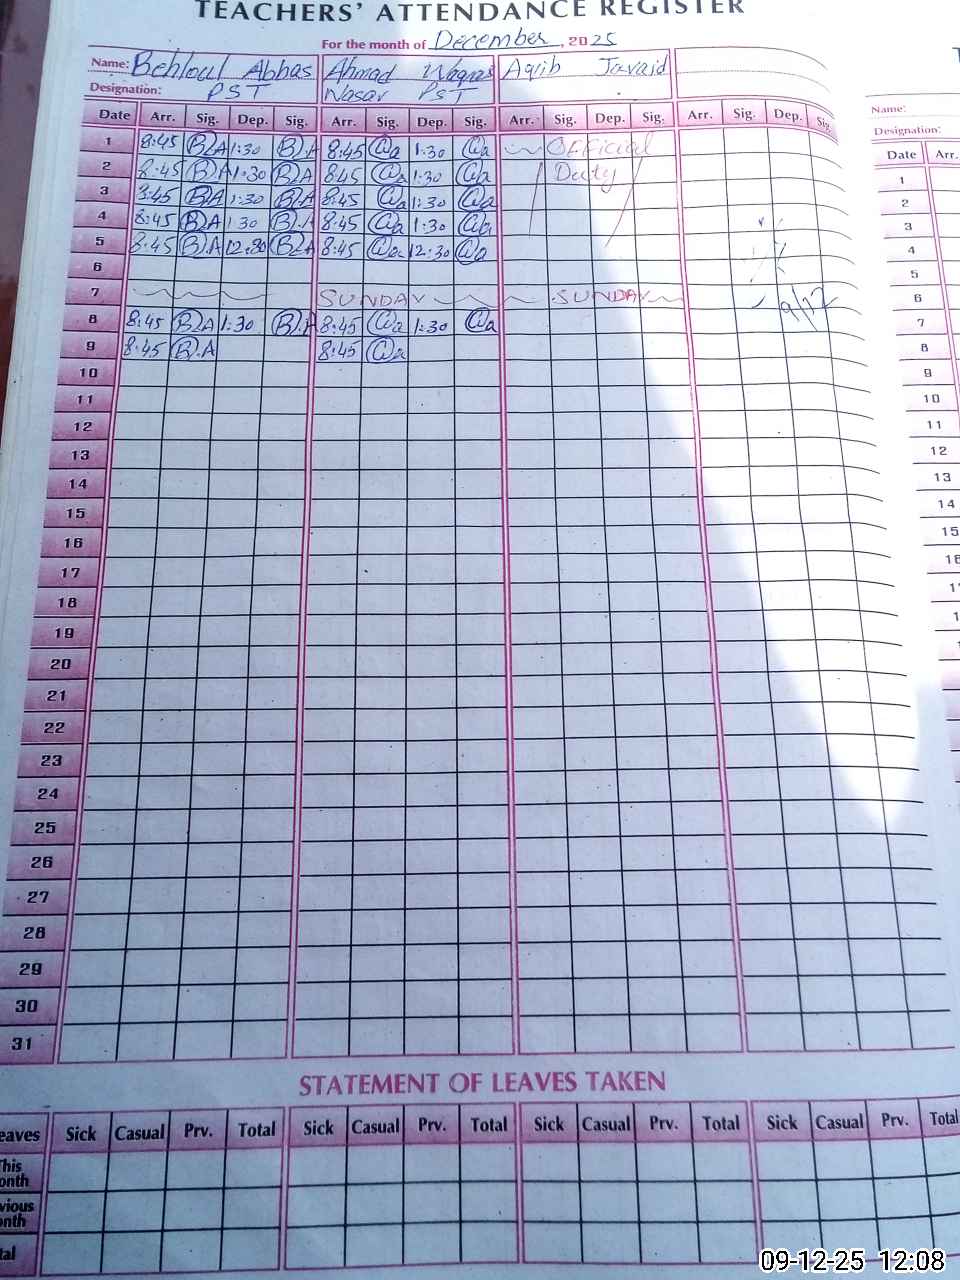 TEACHERS' ATTENDANCE REGISTER
For the month of December, 2025
Name: Behloul Abbas Ahmad Waqas Aqib Javaid
Designation: PST Nasar PST
Name:
Designation:
Date Arr. Sig. Dep. Sig. Arr. Sig. Dep. Sig. Arr. Sig. Dep. Sig. Arr. Sig. Dep. Sig.
Date Arr.
1 8:45 B.A 1:30 B.A 8:45 a 1:30 a Official
2 8:45 B.A 1:30 B.A 8:45 a 1:30 a Duty
3 8:45 B.A 1:30 B.A 8:45 a 1:30 a
4 8:45 B.A 1:30 B.A 8:45 a 1:30 a
5 8:45 B.A 12:30 B.A 8:45 a 12:30 a
6
7 SUNDAY SUNDAY
9/12
8 8:45 B.A 1:30 B.A 8:45 a 1:30 a
9 8:45 B.A 8:45 a
10
11
12
13
14
15
16
17
18
19
20
21
22
23
24
25
26
27
28
29
30
31
1
2
3
4
5
6
7
8
9
10
11
12
13
14
15
STATEMENT OF LEAVES TAKEN
eaves Sick Casual Prv. Total Sick Casual Prv. Total Sick Casual Prv. Total Sick Casual Prv. Total
This
onth
vious
onth
tal
09-12-25 12:08